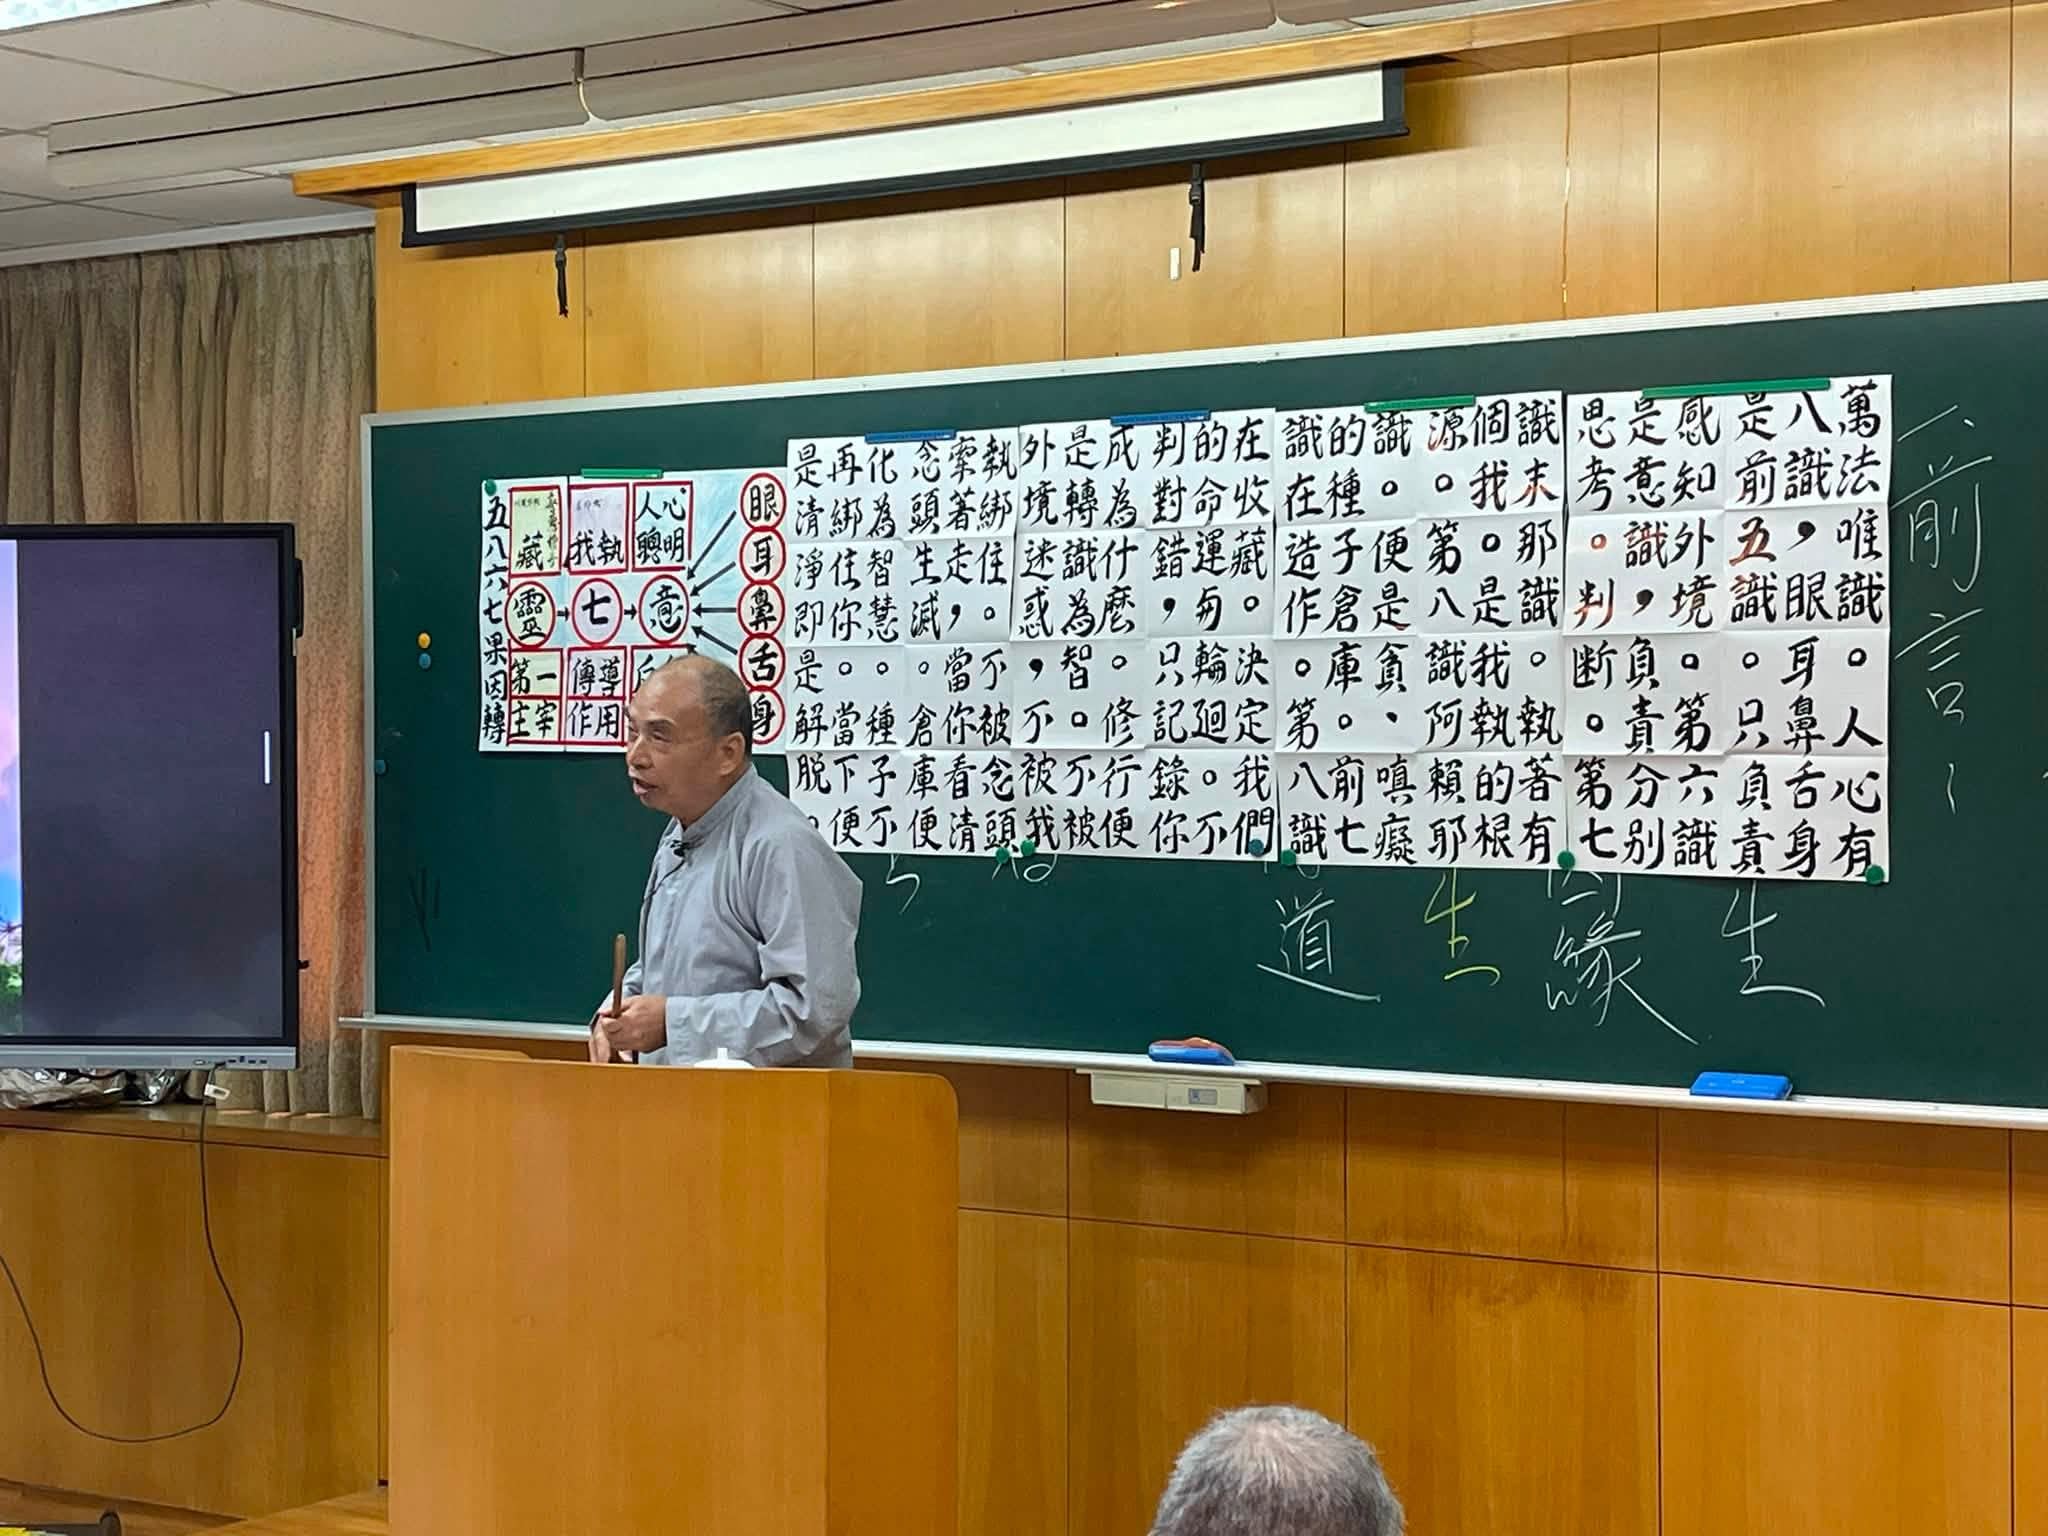 一、前言
萬法唯識。人心有
八識，眼耳鼻舌身
是前五識。只負責
感知外境。第六識
是意識，負責分別
思考。判斷。第七
識末那識。執著有
個我。是我執的根
源。第八識阿賴耶
識。便是貪、嗔癡
的種子倉庫。前七
識在造作。第八識
在收藏。決定我們
的命運輪迴。不
判對錯，只記錄你
成為什麼。修行便
是轉識為智。不被
外境迷惑，不被我
執綁住。不被念頭
牽著走，當你看清
念頭生滅。倉庫便
化為智慧。種子不
再綁住你。當下便
是清淨即是解脫。
眼
耳
鼻
舌
身
人心
聰明
意
我執
七
傳導
作用
藏
靈
第一
主宰
五八六七果因轉
生
緣
生
道